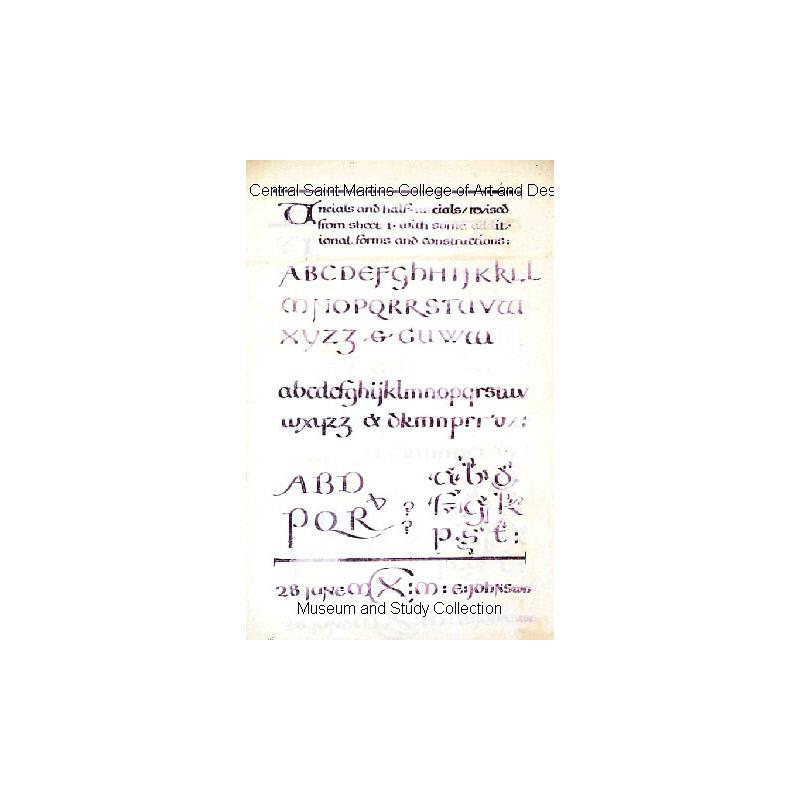 Central Saint Martins College of Art and Des
Uncials and half-uncials/revised
from sheet 1. with some addit-
ional forms and constructions:
ABCDEFGhHIJKkLL
MNOPQRRSTUVW
XYZZ3 · & · GUWW
abcdefghijklmnopqrsuvw
wxyz3 & dkmnprr'v/:
ABD
PQR b ? ?
a b g
f g k
p s t :
28 JUNE M CX : M : E: Johnston
Museum and Study Collection